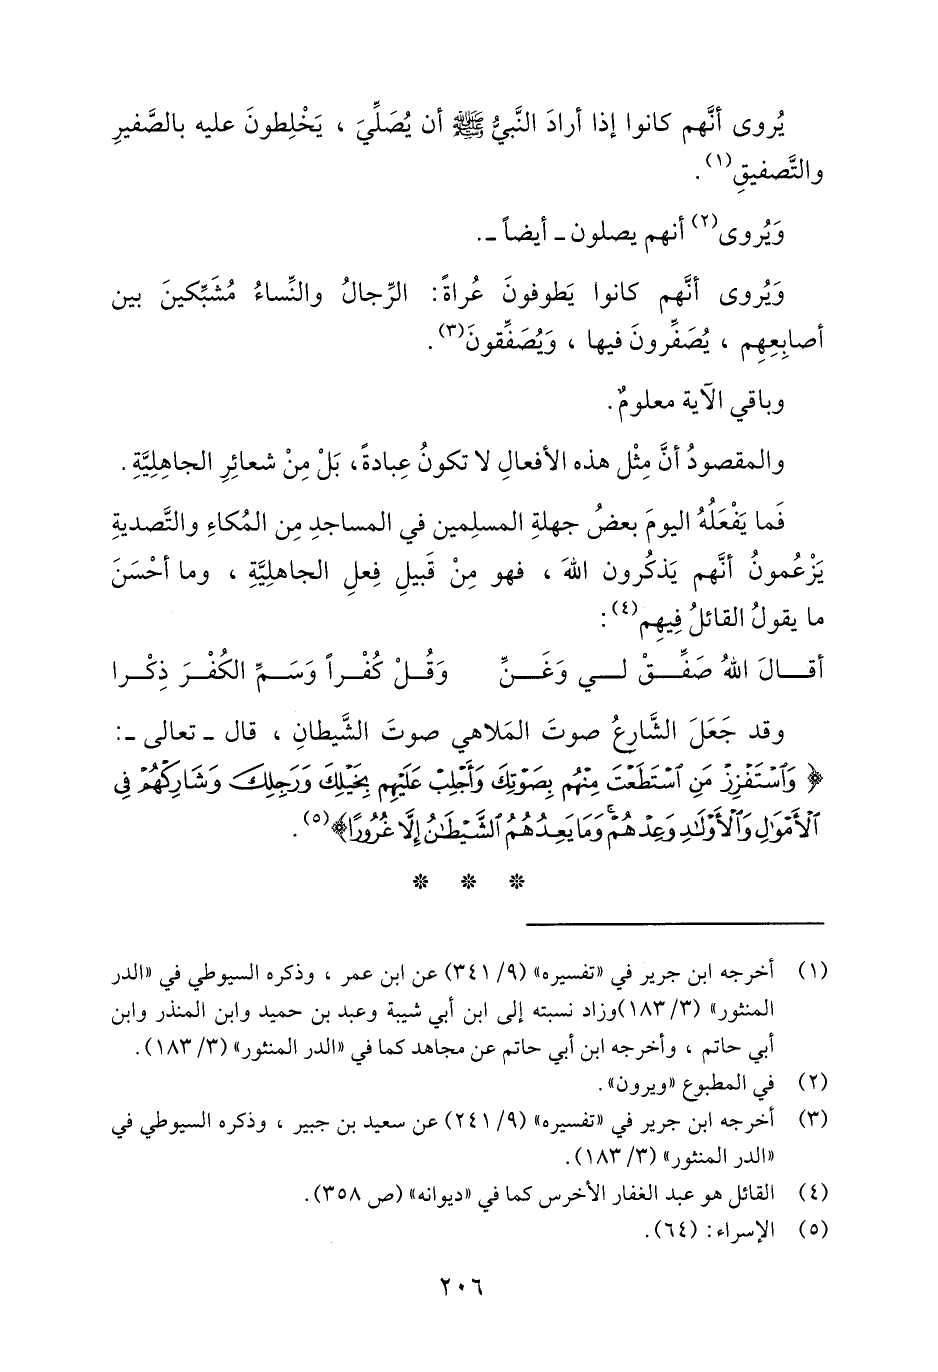 يُروى أنَّهم كانوا إذا أرادَ النَّبيُّ ﷺ أن يُصَلِّيَ ، يَخْلِطونَ عليه بالصَّفيرِ
والتَّصفيقِ(١).
وَيُروى(٢) أنهم يصلون ـ أيضاً ـ.
وَيُروى أنَّهم كانوا يَطوفونَ عُراةً: الرِّجالُ والنِّساءُ مُشَبِّكينَ بين
أصابِعِهم ، يُصَفِّرونَ فيها ، وَيُصَفِّقونَ(٣).
وباقي الآية معلومٌ.
والمقصودُ أنَّ مِثْل هذه الأفعالِ لا تكونُ عِبادةً، بَلْ مِنْ شعائِرِ الجاهليَّةِ .
فَما يَفْعَلُهُ اليومَ بعضُ جهلةِ المسلِمين في المساجدِ مِن المُكاءِ والتَّصديةِ
يَزْعُمونُ أنَّهم يَذكُرون اللهَ ، فهو مِنْ قَبيلِ فِعلِ الجاهليَّةِ ، وما أحْسَنَ
ما يقولُ القائلُ فِيهِم(٤):
أقـالَ اللهُ صَفِّـقْ لـي وَغَـنِّ    وَقُـلْ كُفْـراً وَسَـمِّ الكُفْـرَ ذِكْـرا
وقد جَعَلَ الشَّارِعُ صوتَ المَلاهي صوتَ الشَّيطانِ ، قال ـ تعالى ـ:
﴿ وَٱسْتَفْزِزْ مَنِ ٱسْتَطَعْتَ مِنْهُم بِصَوْتِكَ وَأَجْلِبْ عَلَيْهِم بِخَيْلِكَ وَرَجِلِكَ وَشَارِكْهُمْ فِى
ٱلْأَمْوَٰلِ وَٱلْأَوْلَٰدِ وَعِدْهُمْ ۚ وَمَا يَعِدُهُمُ ٱلشَّيْطَٰنُ إِلَّا غُرُورًا﴾(٥).
* * *
(١) أخرجه ابن جرير في «تفسيره» (٩/ ٣٤١) عن ابن عمر ، وذكره السيوطي في «الدر
المنثور» (٣/ ١٨٣)وزاد نسبته إلى ابن أبي شيبة وعبد بن حميد وابن المنذر وابن
أبي حاتم ، وأخرجه ابن أبي حاتم عن مجاهد كما في «الدر المنثور» (٣/ ١٨٣).
(٢) في المطبوع «ويرون».
(٣) أخرجه ابن جرير في «تفسيره» (٩/ ٢٤١) عن سعيد بن جبير ، وذكره السيوطي في
«الدر المنثور» (٣/ ١٨٣).
(٤) القائل هو عبد الغفار الأخرس كما في «ديوانه» (ص ٣٥٨).
(٥) الإسراء: (٦٤).
٢٠٦